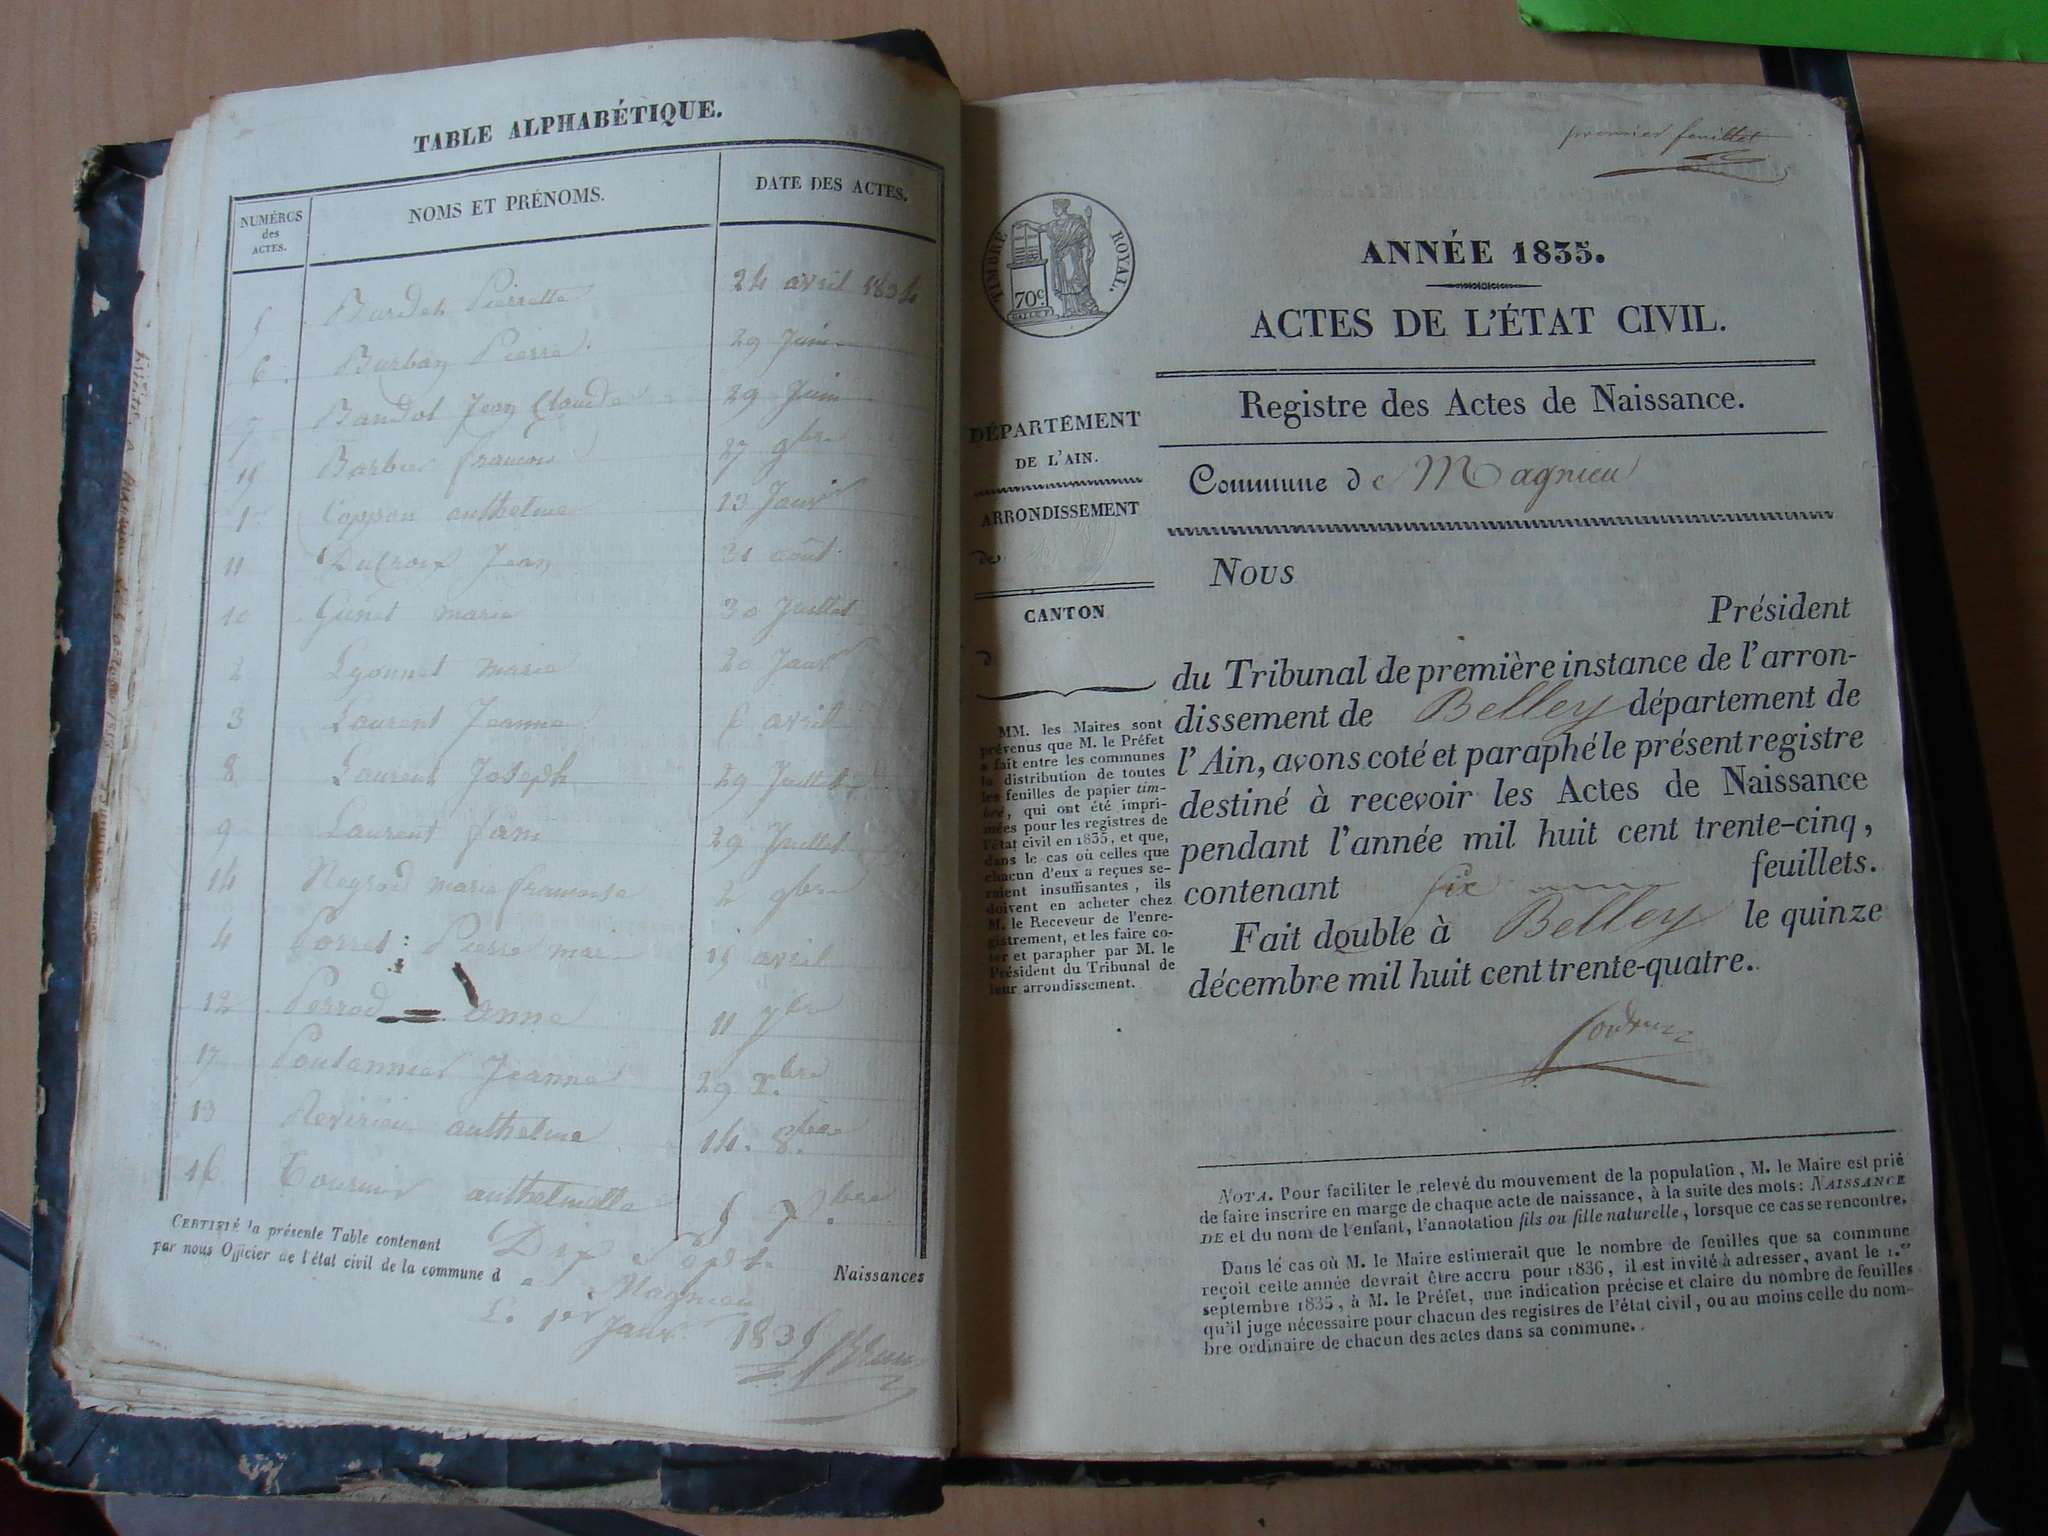 TABLE ALPHABÉTIQUE.
NUMÉROS des ACTES.
NOMS ET PRÉNOMS.
DATE DES ACTES.
5 Burdet Pierrette 24 avril 1834
6. Burban Pierre 29 Juin
7 Bandot Jean Claude 29 Juin
15 Barbier francois 27 9bre
1 Coppon anthelme 13 Janvr
11 DuCroix Jean 31 août
10 Genet marie 30 Juillet
2 Lyonnet marie 20 Janvr
3 Laurent Jeanne 6 avril
8 Laurent Joseph 29 Juillet
9 Laurent Jean 29 Juillet
14 Neyroud marie francoise 2 9bre
4 Porret: Pierre mar 15 avril
12 Perrod = anne 11 7bre
17 Jeanne 29 X.bre
13 anthelme 14. 8.bre
16 anthelmette 5 bre
CERTIFIÉ la présente Table contenant Dix Sept Naissances
par nous Officier de l'état civil de la commune de Magnieu
Le 1er Janvr 1835
premier feuillet
TIMBRE ROYAL.
70c.
ANNÉE 1835.
ACTES DE L'ÉTAT CIVIL.
Registre des Actes de Naissance.
Commune de Magnieu
DÉPARTEMENT
DE L'AIN.
ARRONDISSEMENT
de
CANTON
d
MM. les Maires sont
prévenus que M. le Préfet
a fait entre les communes
la distribution de toutes
les feuilles de papier tim-
bré, qui ont été impri-
mées pour les registres de
l'état civil en 1835, et que,
dans le cas où celles que
chacun d'eux a reçues se-
raient insuffisantes, ils
doivent en acheter chez
M. le Receveur de l'enre-
gistrement, et les faire co-
ter et parapher par M. le
Président du Tribunal de
leur arrondissement.
Nous
Président
du Tribunal de première instance de l'arron-
dissement de Belley département de
l'Ain, avons coté et paraphé le présent registre
destiné à recevoir les Actes de Naissance
pendant l'année mil huit cent trente-cinq,
contenant six feuillets.
Fait double à Belley le quinze
décembre mil huit cent trente-quatre.
NOTA. Pour faciliter le relevé du mouvement de la population, M. le Maire est prié
de faire inscrire en marge de chaque acte de naissance, à la suite des mots: NAISSANCE
DE et du nom de l'enfant, l'annotation fils ou fille naturelle, lorsque ce cas se rencontre.
Dans le cas où M. le Maire estimerait que le nombre de feuilles que sa commune
reçoit cette année devrait être accru pour 1836, il est invité à adresser, avant le 1.er
septembre 1835, à M. le Préfet, une indication précise et claire du nombre de feuilles
qu'il juge nécessaire pour chacun des registres de l'état civil, ou au moins celle du nom-
bre ordinaire de chacun des actes dans sa commune.